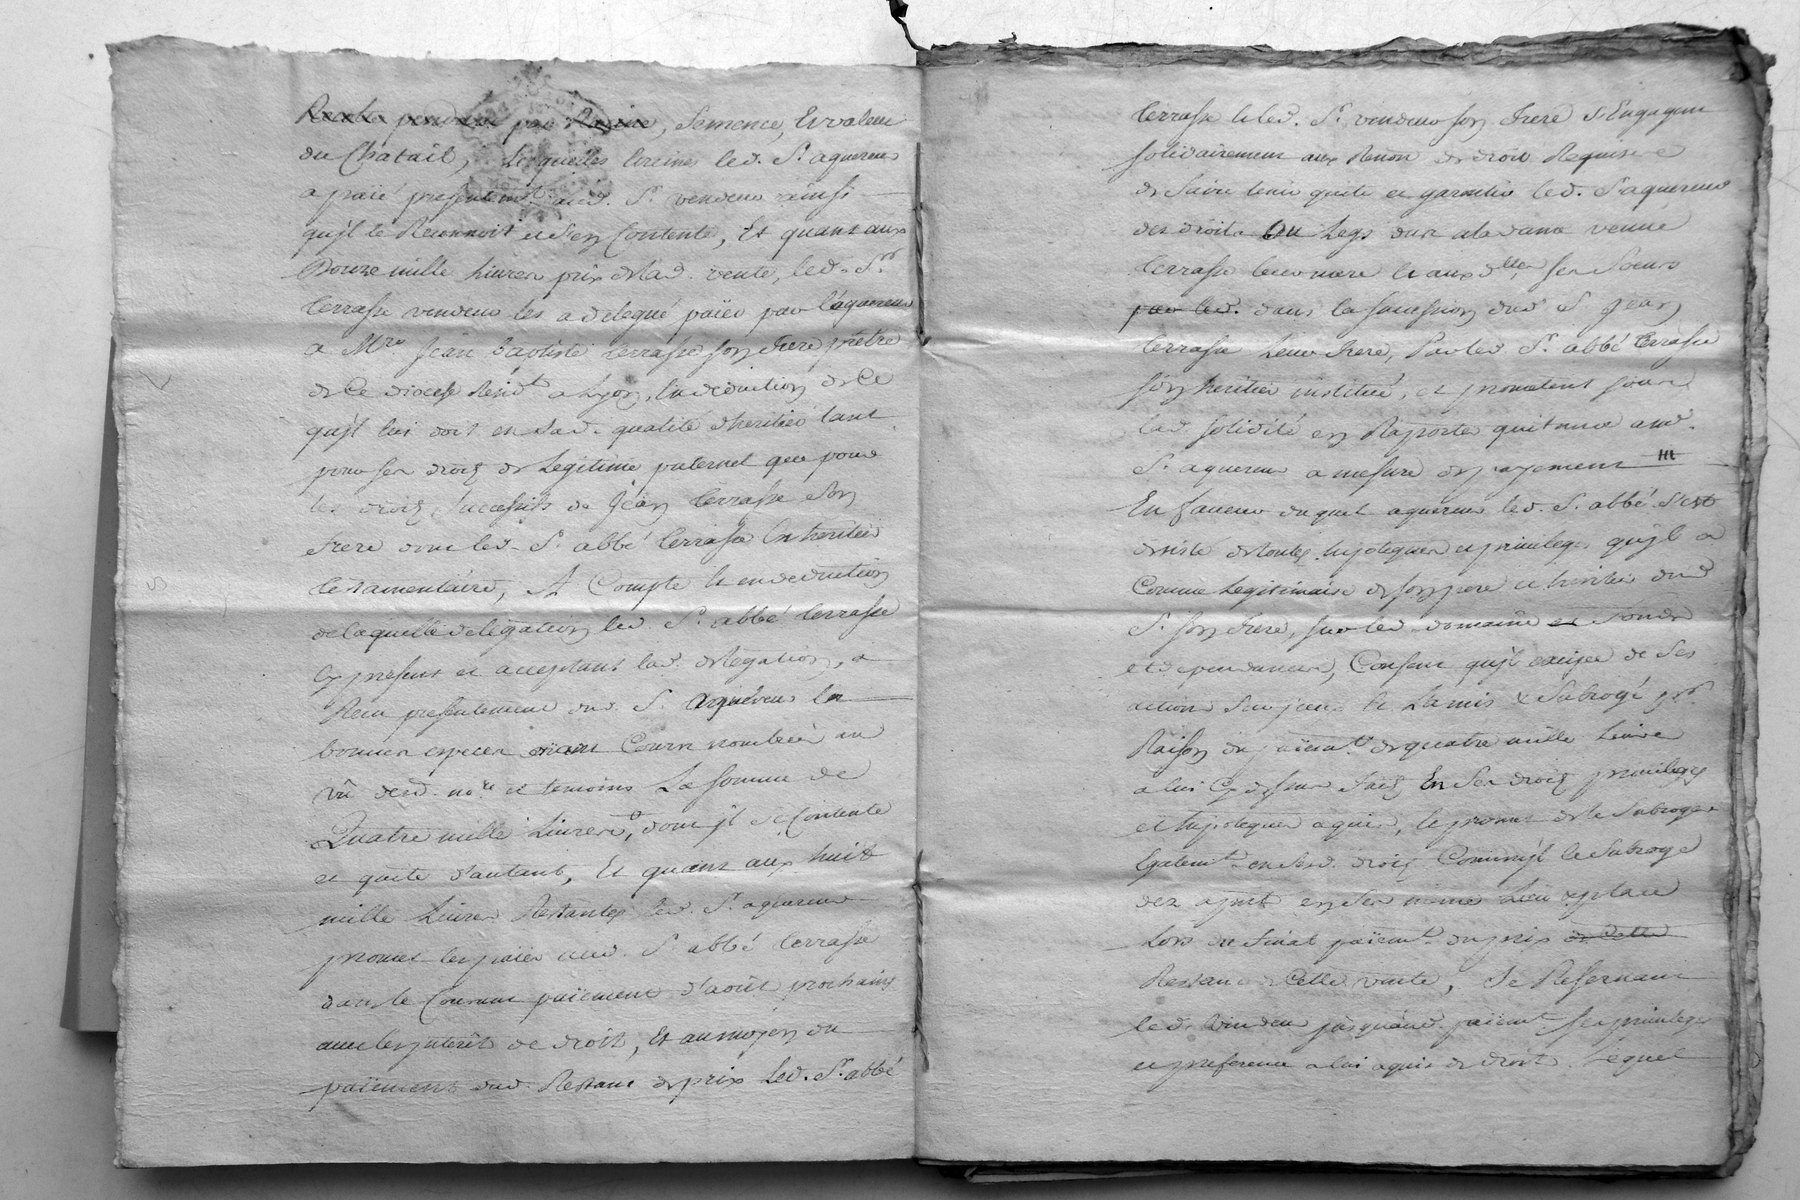 par Racine, Semence, Et valeur
du Chatail, lesquelles led. Sr. aquereur
a païé presentement aud. Sr. vendeur ainsi
qu'jl le Reconnoit et s'en Contente, Et quant aux
Douze mille Livres prix de lad. vente, led. Sr.
terrasse vendeur les a delegué païer par l'aquereur
a Mre. Jean baptiste terrasse son frere prêtre
de Ce diocese Resid.t a Lyon, En deduction de Ce
qu'jl lui doit en sad. qualité d'heritier tant
pour ses droits de Legitime paternel que pour
les droits successifs de Jean terrasse Son
frere dont led. Sr. abbé terrasse Est heritier
testamentaire, A Compte Et en deduction
de laquelle delegation led. Sr. abbé terrasse
Cy present et acceptant lad. delegation, a
Recu presentement dud. Sr. aquereur En
bonnes especes aiant Cours nombrées au
vû desd. nore. et temoins La somme de
Quatre mille Livres, dont jl se Contente
et quite d'autant, Et quant aux huit
mille Livres Restantes led. Sr. aquereur
promet les païer aud. Sr. abbé terrasse
dans le Courant païement d'août prochains
avec les jnterêt de droit, Et au moyen du
païement dud. Restant de prix Led. Sr. abbé
terrasse Et led. Sr. vendeur son frere s'Engagent
solidairement aux Renon. de droit Requises
de faire tenir quite et garantir led. Sr. aquereur
des droits ou Legs dus a la dame veuve
terrasse leur mere Et aux dlles. ses Soeurs
par led. dans la succession dud. Sr. Jean
terrasse Leur frere, Par led. Sr. abbé terrasse
son heritier institué, et promettent sous
lad. solidité en Raporter quitance aud.
Sr. aquereur a mesure de payement
En faveur duquel aquereur led. Sr. abbé s'est
desisté de toutes hypoteques et privileges qu'jl a
Comme Legitimaire de son pere et heritier dud.
Sr. son frere, sur led. domaine et fonds
et dependances, Consent qu'jl excipe de Ses
actions Et L'a mis & Subrogé pr.
Raison du païemt. de quatre mille Livres
a lui Cy dessus faits En Ses droits privileges
et hypoteques aquis, Et promet de le Subroger
Egalemt. en sesd. droits Comm'jl le Subroge
des a pnt en Son même Lieu & place
Lors du final païemt. du prix de Cette
Restant de Cette vente, Se Reservant
led. vendeur jusqu'aud. païemt. ses privileges
et preference a lui aquis de droit. Lequel